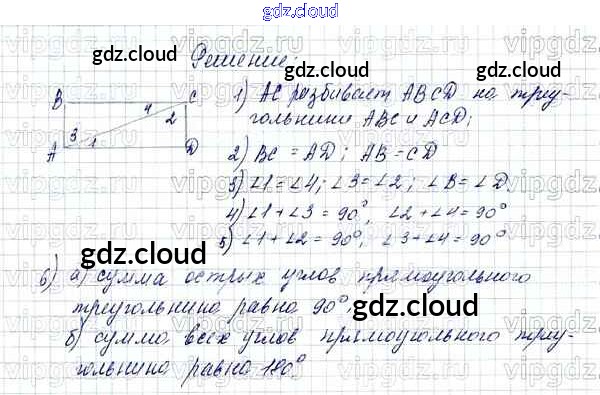 gdz.cloud
gdz.cloud
Решение:
gdz.cloud
B
C
4
2
3
1
A
D
1) AC разбивает ABCD на треу-
гольники ABC и ACD;
2) BC = AD; AB = CD
3) ∠1=∠4; ∠3=∠2; ∠B=∠D.
4) ∠1+∠3 = 90°, ∠2+∠4 = 90°
5) ∠1+∠2 = 90°, ∠3+∠4 = 90°
gdz.cloud
gdz.cloud
6) а) сумма острых углов прямоугольного
треугольника равна 90°,
gdz.cloud
б) сумма всех углов прямоугольного треу-
гольника равна 180°